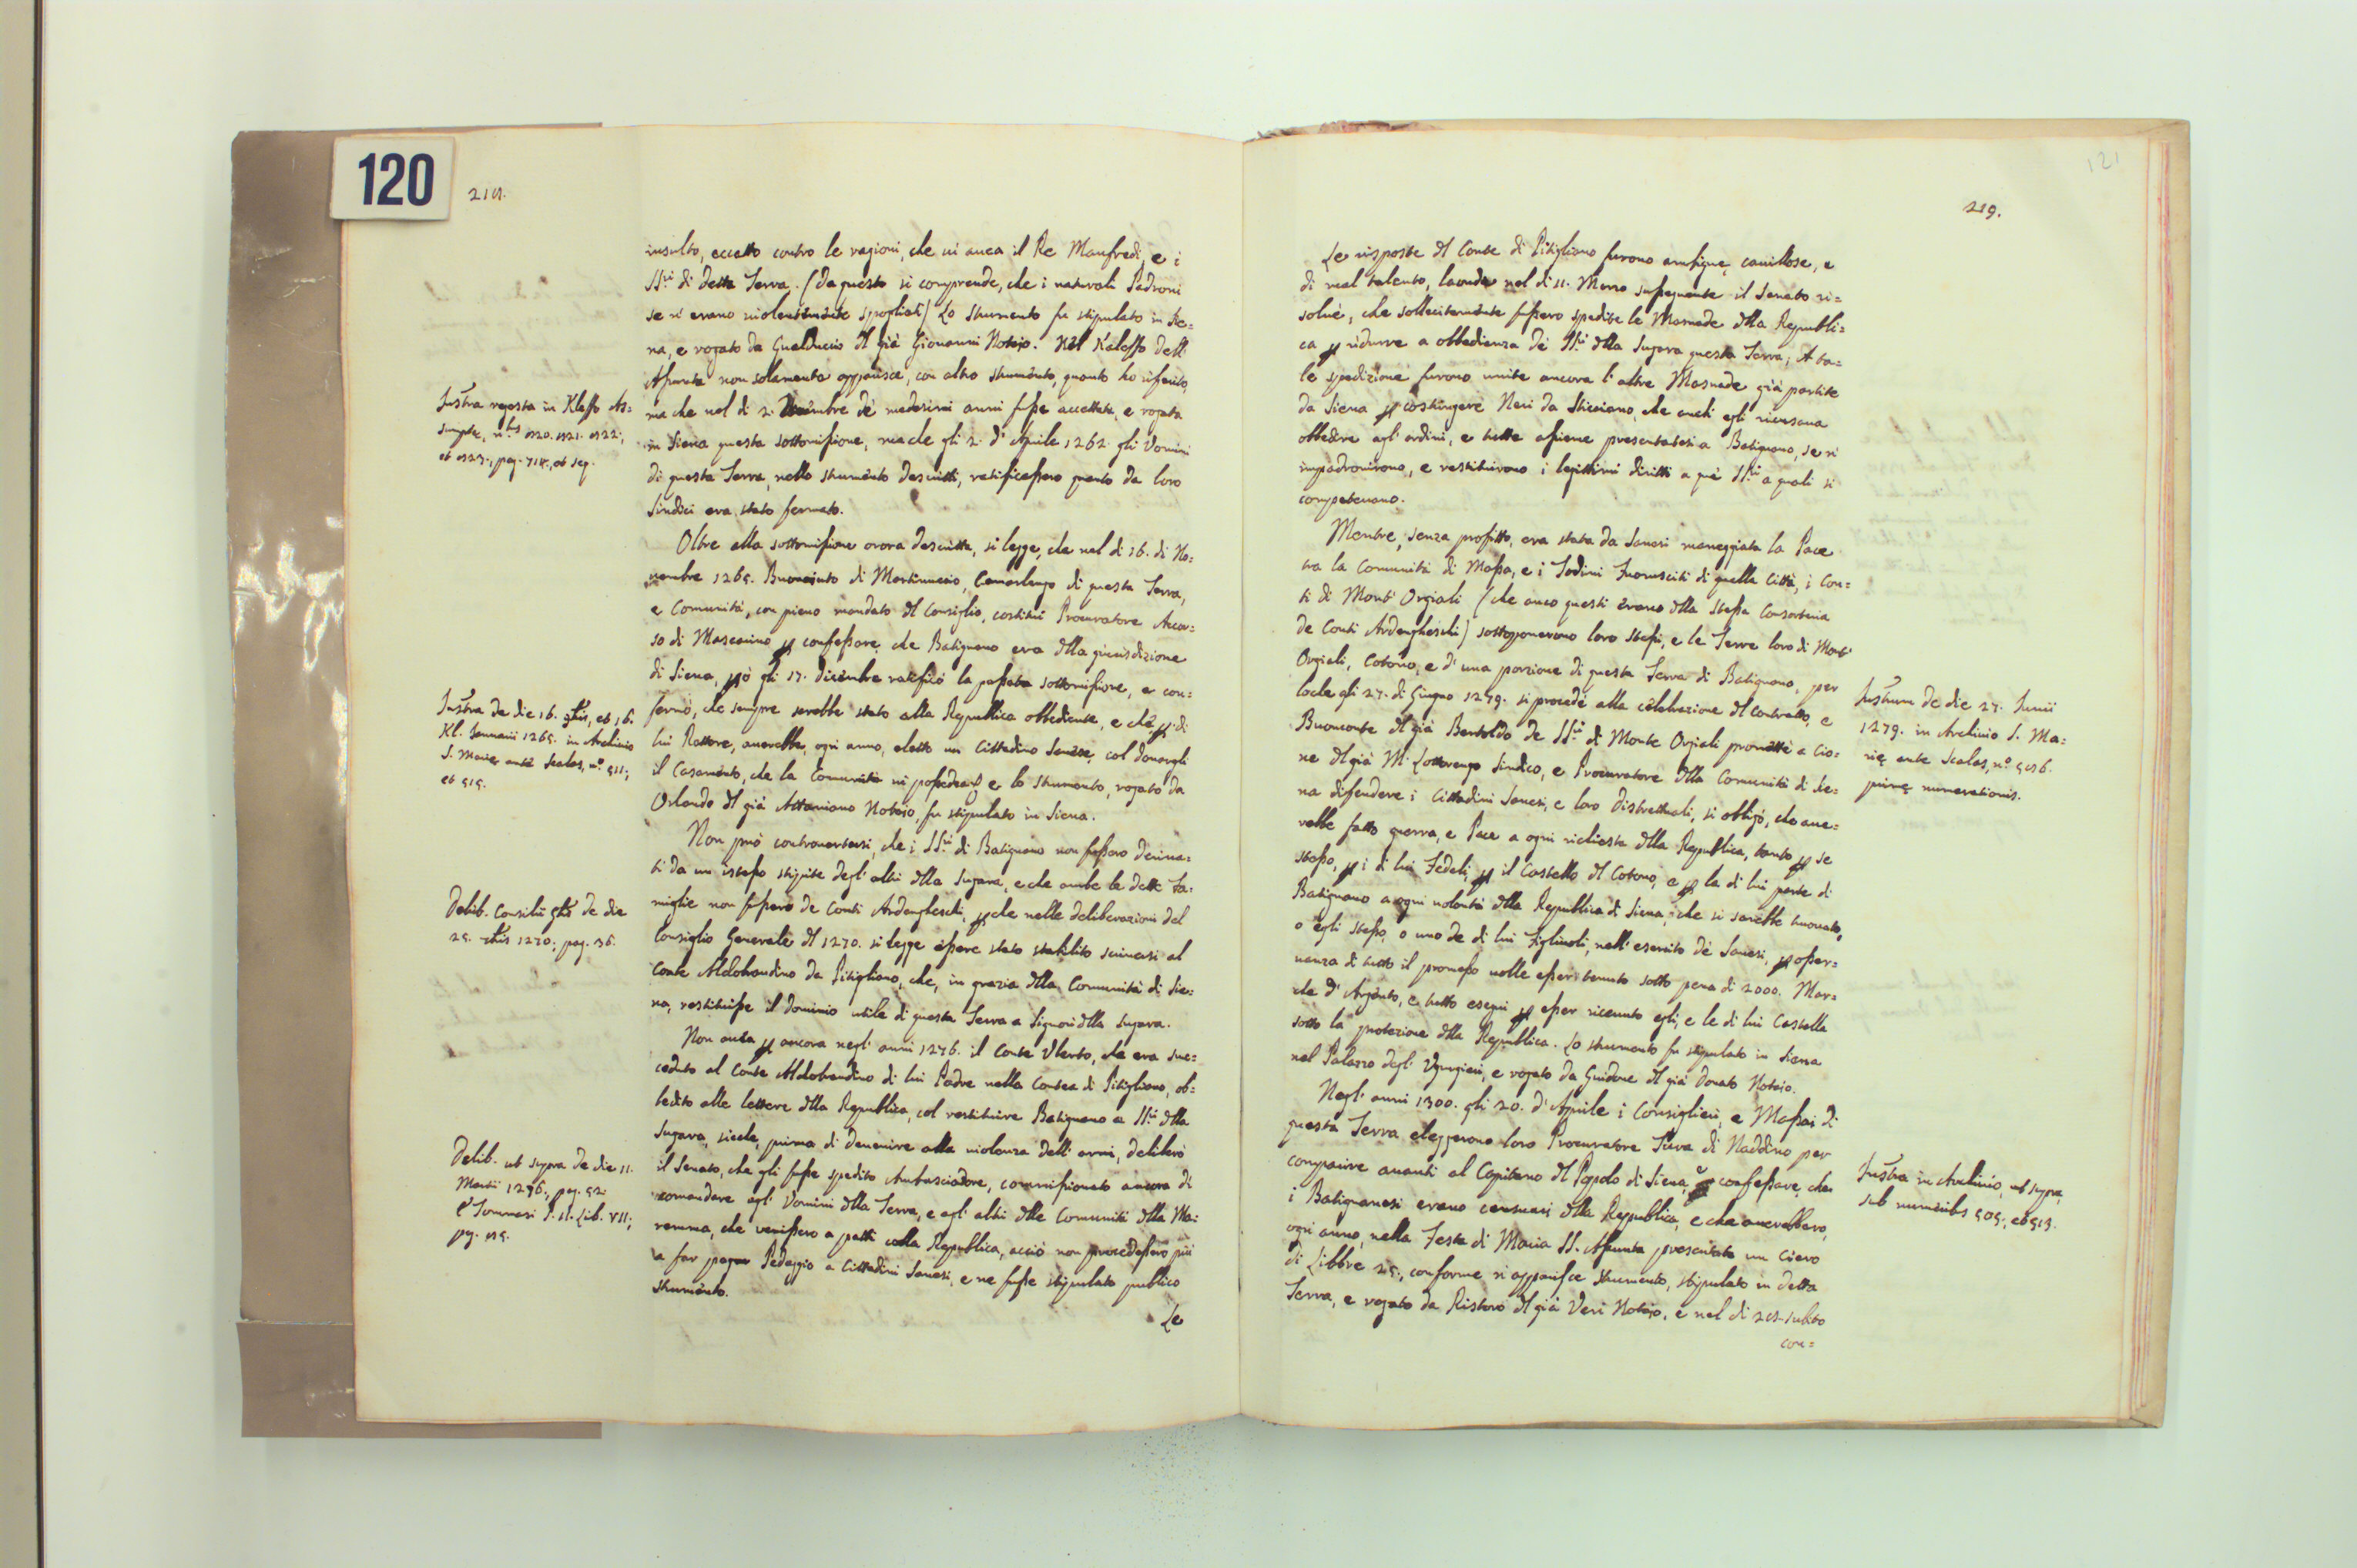 120
218.
insulto, eccetto contro le ragioni, che vi avea il Re Manfredi, e i
SS.ri di detta Terra. (Da questo si comprende, che i naturali Padroni
se n'erano violentemente spogliati) Lo Strumento fu stipulato in Sie=
na, e rogato da Gualduccio dl già Giovanni Notaio. Nel Kaleffo dell'
Assunta non solamente apparisce, con altro strumento, quanto ho riferito,
ma che nel dì 2. Dicembre de' medesimi anni fusse accettata, e rogata
in Siena questa sottomissione, ma che gli 2. d'Aprile 1262. gli Uomini
di questa Terra, nello strumento descritti, ratificassero quanto da loro
Sindici era stato fermato.
Instra regesta in Kleffo As=
sumptę, n.is 820. 821. 822.,
et 823., pag. 718., et seq.
Oltre alla sottomissione orora descritta, si legge, che nel dì 16. di No=
vembre 1265. Buonaiuto di Martinuccio, Camarlengo di questa Terra,
e Comunità, con pieno mandato dl Consiglio, costituì Procuratore Accor=
so di Mascarino p confessare, che Batignano era dlla giurisdizione
di Siena, pò gli 17. dicembre ratificò la passata sottomissione, e con=
fermò, che sempre sarebbe stato alla Republica obbediente, e che p di
lui Rettore, averebbe, ogni anno, eletto un Cittadino Sanese, col donargli
il Casamento, che la Comunità vi possedeva, e lo strumento, rogato da
Orlando dl già Attaviano Notaio, fu stipulato in Siena.
Instra de die 16. 9bris, et 16.
Kl. Januarii 1265. in Archivio
S. Marię ante Scalas, n.o 511.,
et 515.
Non può controvertersi, che i SS.ri di Batignano non fussero deriva=
ti da un istesso stipite degl'altri dlla Sugara, e che ambe le dette Fa=
miglie non fussero de Conti Ardengheschi, p che nelle deliberazioni del
Consiglio Generale dl 1270. si legge essere stato stabilito scriversi al
Conte Aldobrandino da Pitigliano, che, in grazia dlla Comunità di Sie=
na, restituisse il dominio utile di questa Terra a Signori dlla Sugara.
Delib. Consilii Glis de die
25. 1270., pag. 36.
Non avea p ancora negl'anni 1276. il Conte Uberto, che era suc=
ceduto al Conte Aldobrandino di lui Padre nella Contea di Pitigliano, ob=
bedito alle lettere dlla Republica, col restituire Batignano a SS.ri dlla
Sugara, sicche, prima di devenire alla violenza dell'armi, deliberò
il Senato, che gli fusse spedito Ambasciadore, commissionato ancora di
comandare agl'Uomini dlla Terra, e agl'altri dlle Comunità dlla Ma=
remma, che venissero a patti colla Republica, acciò non procedessero più
a far pagar Pedaggio a Cittadini Sanesi, e ne fusse stipulato publico
strumento.
Delib. ut supra de die 11.
Martii 1276., pag. 52.
e Tommasi P. II. Lib. VII.,
pag. 85.
Le
121
219.
Le risposte dl Conte di Pitigliano furono ambigue, cavillose, e
di mal talento, laonde nel dì 11. Marzo susseguente il Senato ri=
solvè, che sollecitamente fussero spedite le Masnade dlla Republi=
ca p ridurre a obbedienza de' SS.ri dlla Sugara questa Terra; A ta=
le spedizione furono unite ancora l'altre Masnade già partite
da Siena p costringere Neri da Sticciano, che anch'egli ricusava
obbedire agl'ordini, e tutte assieme presentatesi a Batignano, se n'
impadronirono, e restituirono i legittimi diritti a quei SS.ri a quali si
competevano.
Mentre, senza profitto, era stata da Sanesi maneggiata la Pace
tra la Comunità di Massa, e i Todini Fuorusciti di quella Città, i Con=
ti di Mont'Orgiali (che anco questi erano dlla stessa Consorteria
de Conti Ardengheschi) sottoponerono loro stessi, e le Terre loro di Mont'
Orgiali, Cotono, e d'una porzione di questa Terra di Batignano, per
lo che gli 27. di Giugno 1279. si procedè alla celebrazione dl Contratto, e
Buonconte dl già Bertoldo de SS.ri di Monte Orgiali promette a Cio=
ne dl già M. Lottorengo Sindico, e Procuratore dlla Comunità di Sie=
na difendere i Cittadini Sanesi, e loro distrettuali, si obligò, che ave=
rebbe fatto guerra, e Pace a ogni richiesta dlla Republica, tanto p se
stesso, p i di lui Fedeli, p il Castello dl Cotono, e p la di lui parte di
Batignano a ogni volontà dlla Republica di Siena, che si sarebbe trovato,
o egli stesso, o uno de di lui Figliuoli, nell'esercito de' Sanesi, p osser=
vanza di tutto il promesso volle esser tenuto sotto pena di 2000. Mar=
che d'Argento, e tutto eseguì p esser ricevuto egli, e le di lui Castella
sotto la protezione dlla Republica. Lo strumento fu stipulato in Siena
nel Palazzo degl'Ugurgieri, e rogato da Guidone dl già Donato Notaio.
Instrum de die 27. Junii
1279. in Archivio S. Ma=
rię ante Scalas, n.o 586.
primę numerationis.
Negl'anni 1300. gli 20. d'Aprile i Consiglieri, e Massai di
questa Terra eleggerono loro Procuratore Puva di Naddino per
comparire avanti al Capitano dl Popolo di Siena, e confessare, che
i Batignanesi erano censuari dlla Republica, e che averebbero,
ogni anno, nella Festa di Maria SS. Assunta presentato un Ciero
di Libbre 25., conforme n'apparisce strumento, stipulato in detta
Terra, e rogato da Ristoro dl già Veri Notaio, e nel dì 28. subito
Instra in Archivio, ut supra,
sub numeribs 505., et 513.
con=